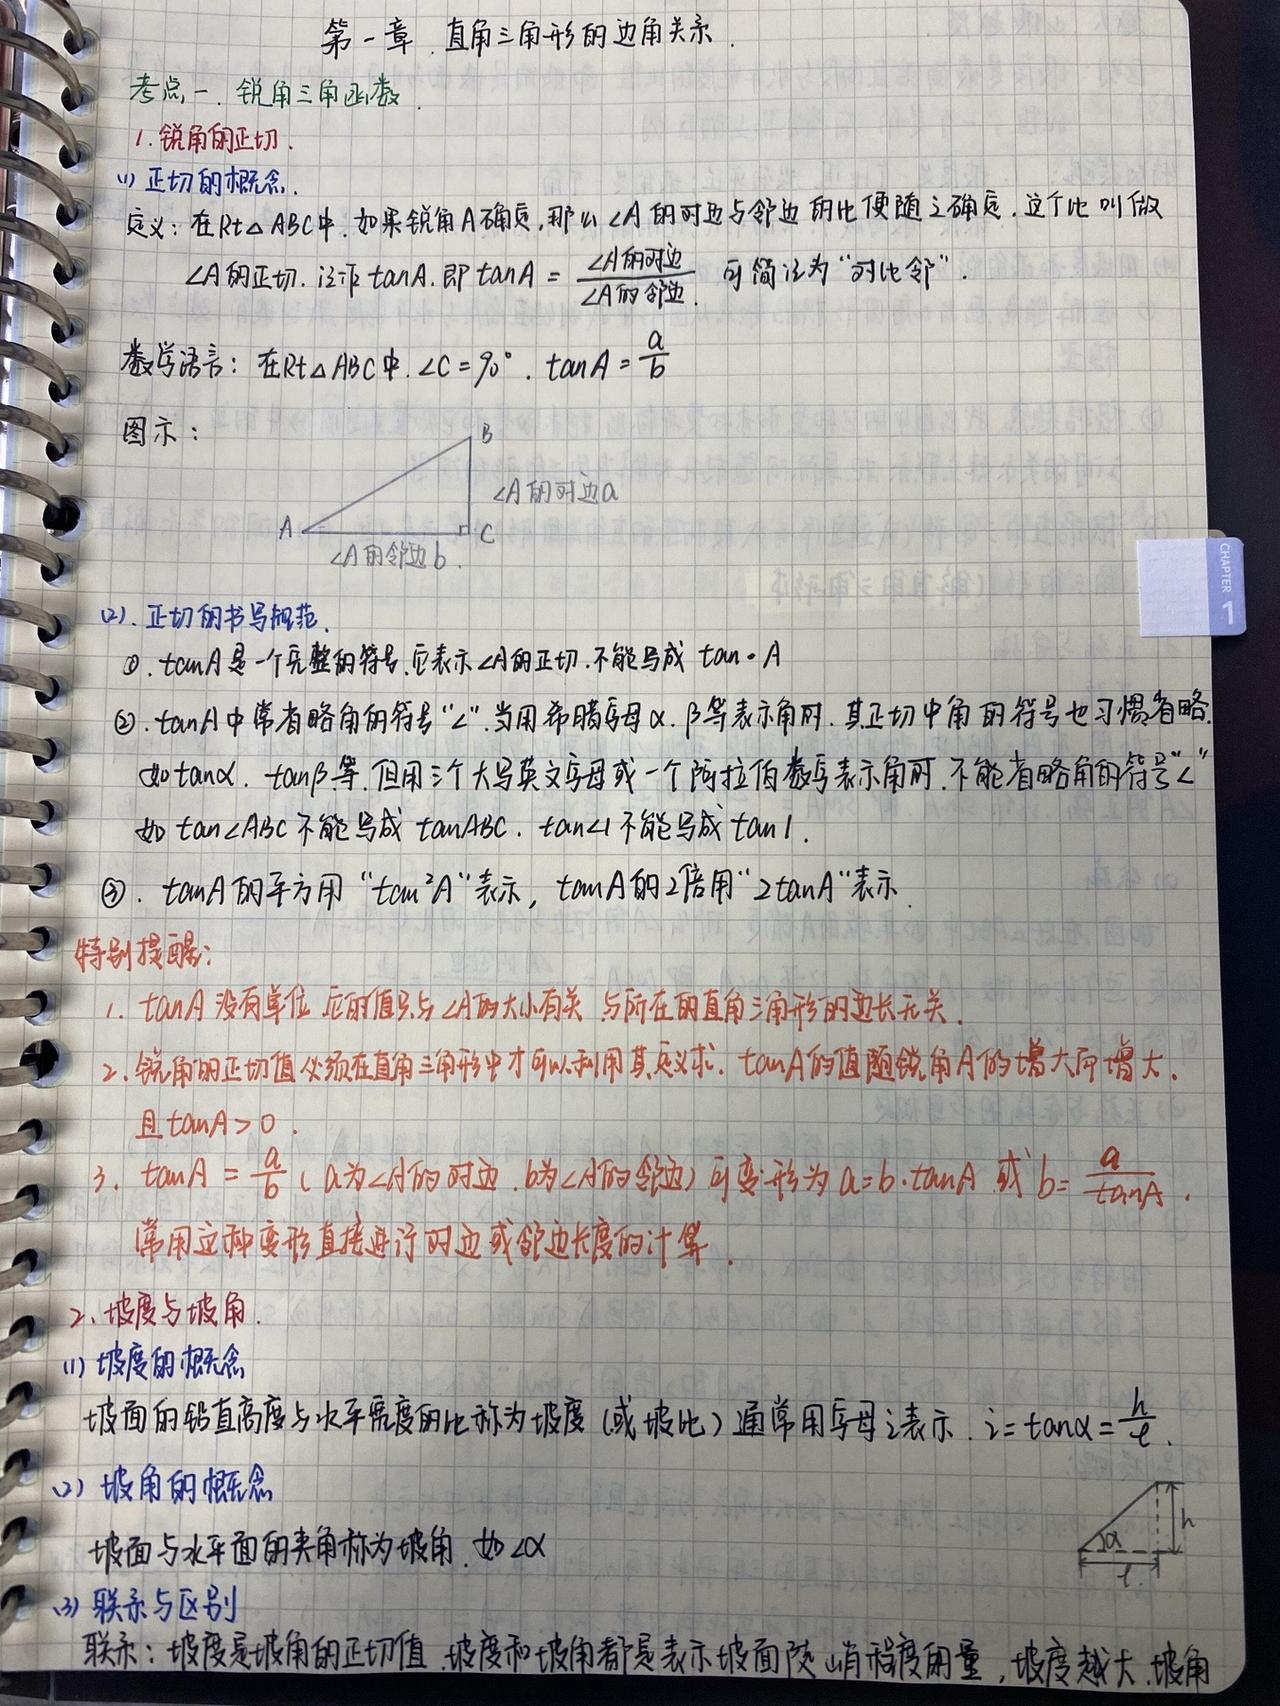 第一章.直角三角形的边角关系.
考点一.锐角三角函数.
1.锐角的正切.
(1)正切的概念.
定义:在Rt△ABC中.如果锐角A确定,那么∠A的对边与邻边的比便随之确定.这个比叫做
∠A的正切.记作tanA.即tanA=∠A的对边/∠A的邻边.可简记为“对比邻”.
数学语言:在Rt△ABC中.∠C=90°.tanA=a/b
图示:
B
∠A的对边a
A
C
∠A的邻边b.
CHAPTER 1
(2).正切的书写规范.
①.tanA是一个完整的符号.它表示∠A的正切.不能写成tan·A
②.tanA中常省略角的符号“∠”.当用希腊字母α.β等表示角时.其正切中角的符号也习惯省略.
如tanα.tanβ等.但用三个大写英文字母或一个阿拉伯数字表示角时.不能省略角的符号“∠”
如tan∠ABC不能写成tanABC.tan∠1不能写成tan1.
③.tanA的平方用“tan²A”表示,tanA的2倍用“2tanA”表示.
特别提醒:
1.tanA没有单位 它的值只与∠A的大小有关 与所在的直角三角形的边长无关.
2.锐角的正切值必须在直角三角形中才可以利用其定义求.tanA的值随锐角A的增大而增大.
且tanA>0.
3.tanA=a/b(a为∠A的对边.b为∠A的邻边)可变形为a=b·tanA或b=a/tanA.
常用这种变形直接进行对边或邻边长度的计算.
2.坡度与坡角.
(1)坡度的概念
坡面的铅直高度与水平宽度的比称为坡度(或坡比)通常用字母i表示.i=tanα=h/ℓ.
(2)坡角的概念
坡面与水平面的夹角称为坡角.如∠α
α
h
ℓ
(3)联系与区别
联系:坡度是坡角的正切值.坡度和坡角都是表示坡面陡峭程度的量,坡度越大.坡角